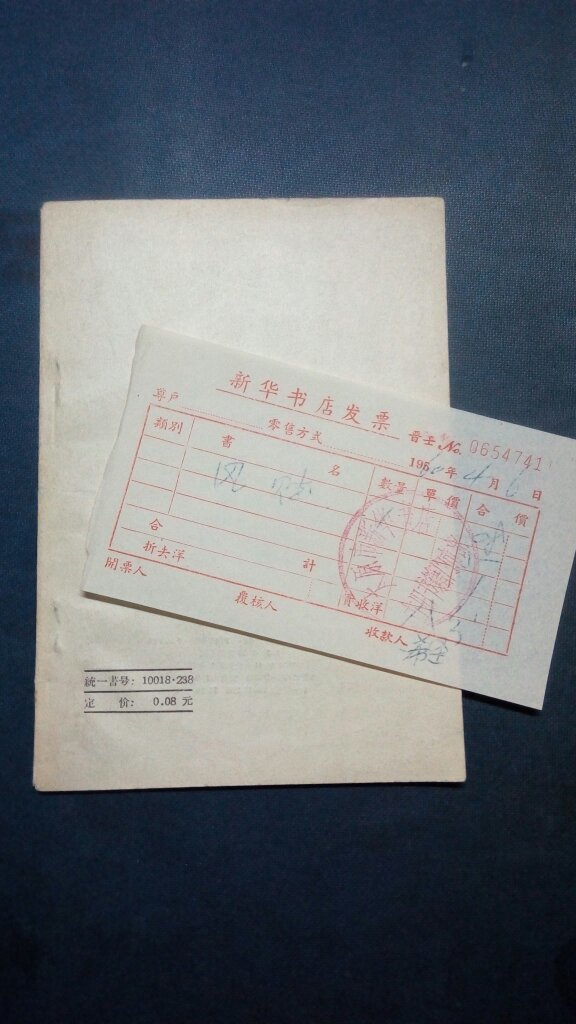 新华书店发票
晋士 No. 0654741
尊戶 零售方式 195 年 4 月 6 日
類別 書 名 數量 單價 合價
合 計
折去洋 實收洋
開票人 覆核人 收款人
統一書号: 10018·238
定 价: 0.08 元